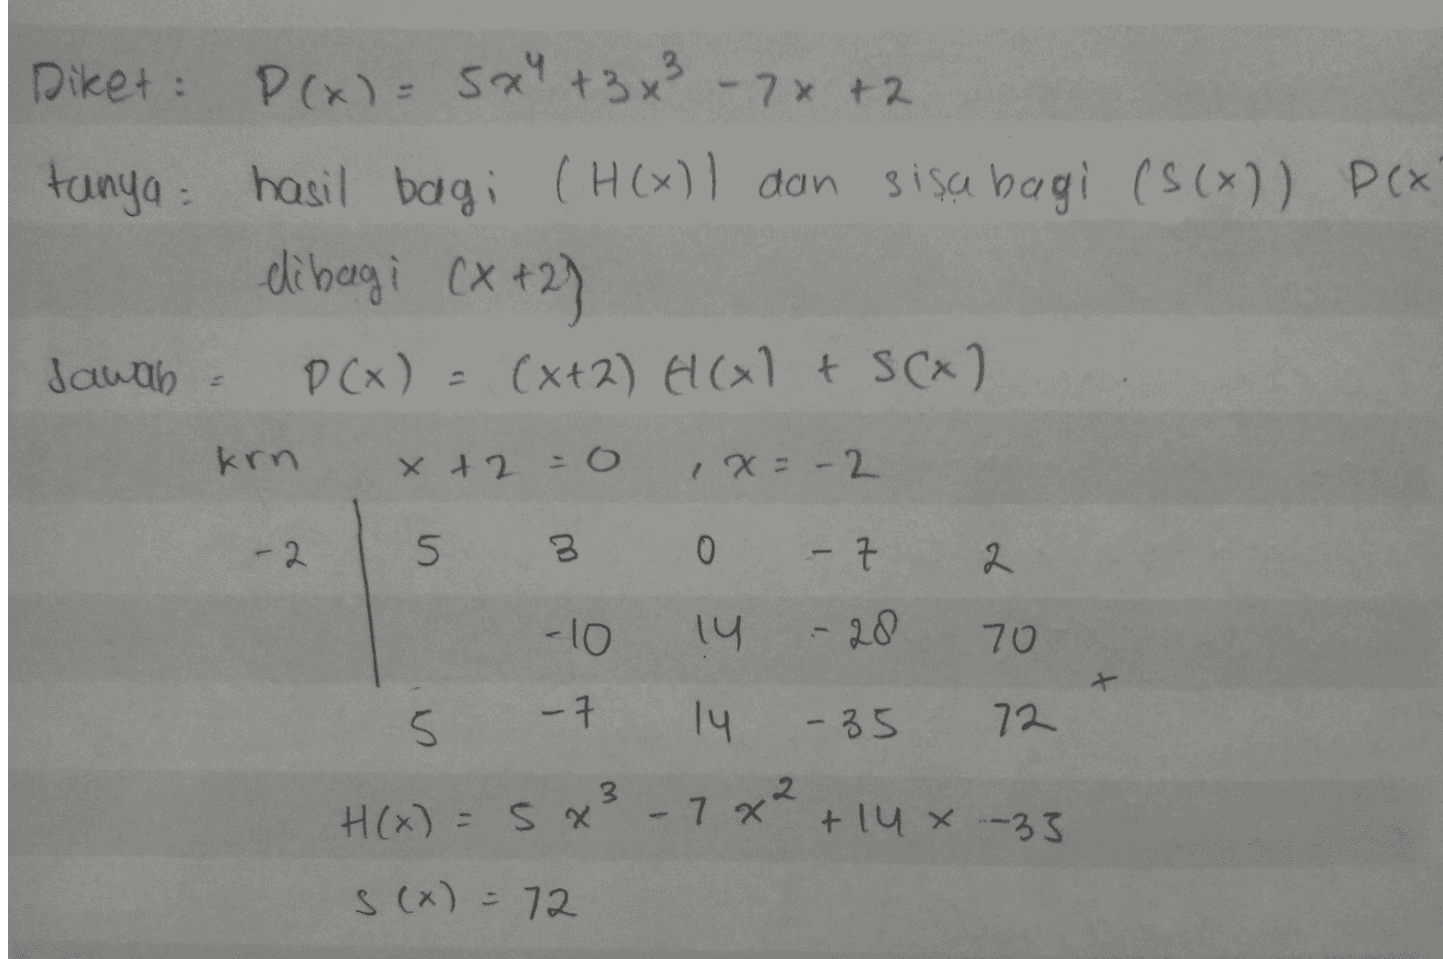 Diket : P(x) = 5x⁴ + 3x³ - 7x + 2
tanya : hasil bagi (H(x)) dan sisa bagi (S(x)) P(x)
dibagi (x+2)
Jawab = P(x) = (x+2) H(x) + S(x)
krn x + 2 = 0 , x = -2
-2 | 5 3 0 -7 2
-10 14 -28 70
+
5 -7 14 -35 72
H(x) = 5x³ - 7x² + 14x - 35
S(x) = 72